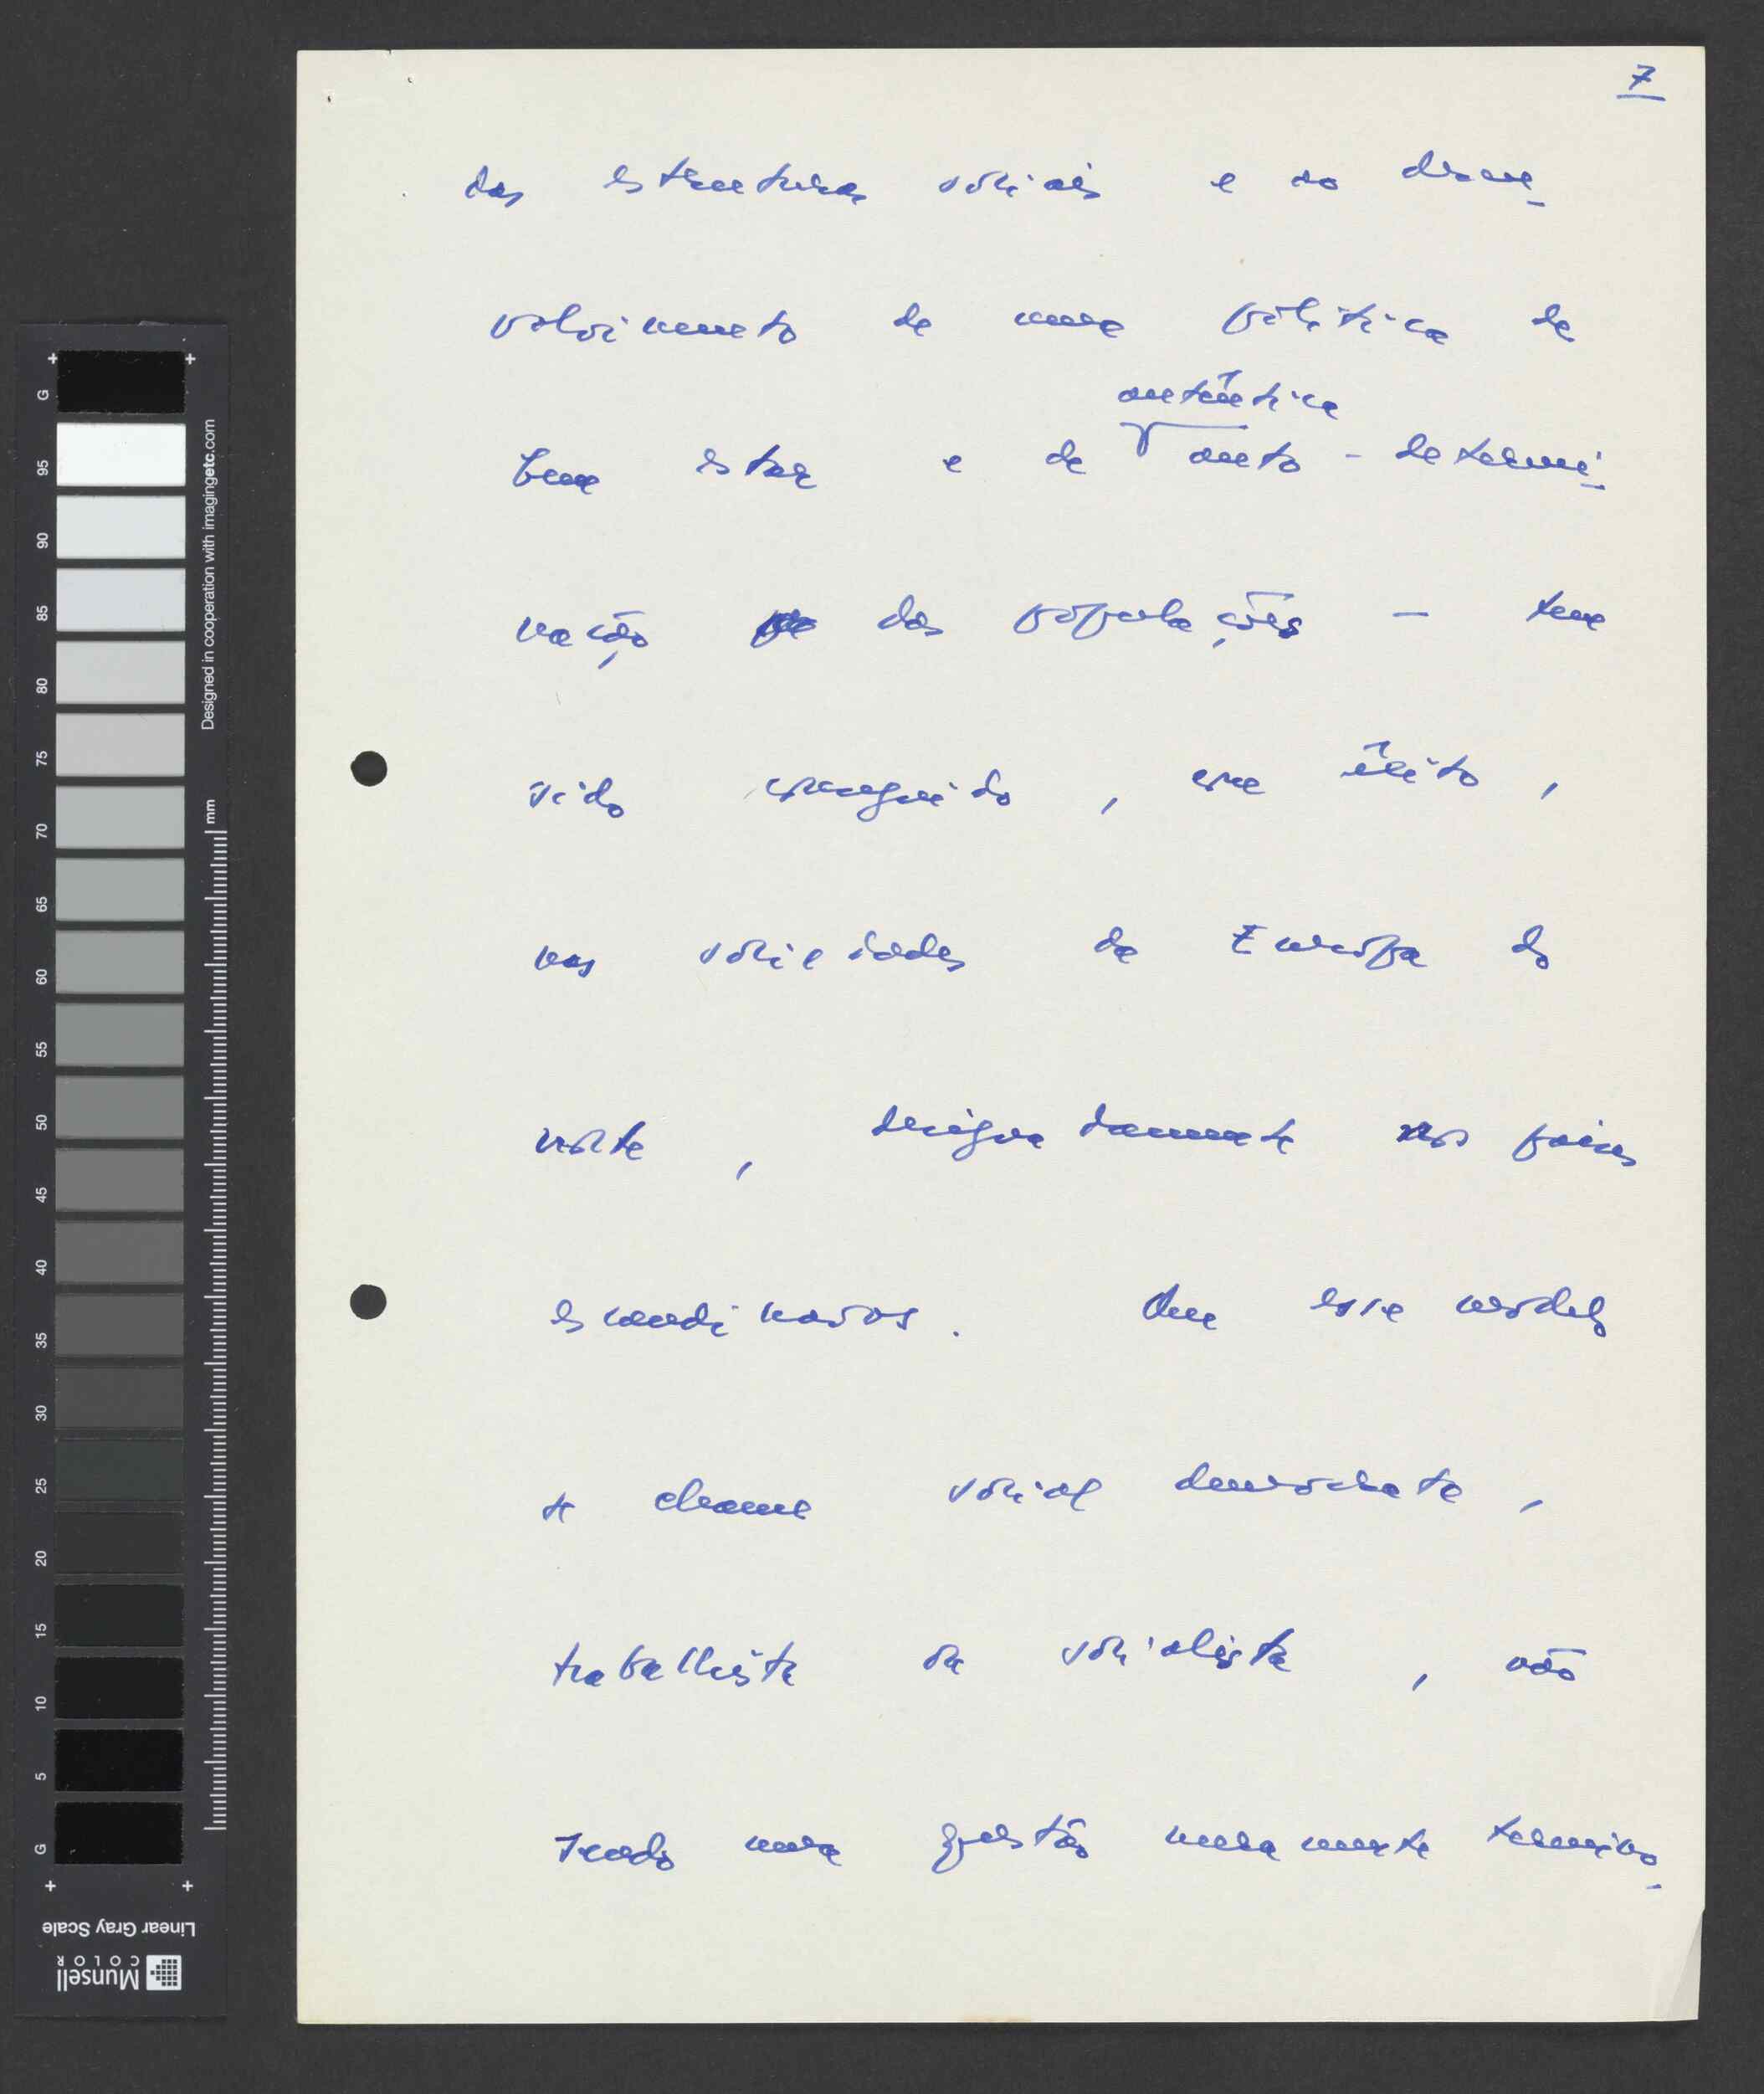 7
das estruturas sociais e ao desen-
volvimento de uma política de
autêntica
bem estar e de auto-determi-
nação das populações – tem
sido conseguido, com êxito,
nas sociedades da Europa do
norte, designadamente nos países
escandinavos. Que esse modelo
se chame social democrata,
trabalhista ou socialista, não
sendo uma questão meramente termino-
G
95
90
85
80
75
70
65
60
55
50
45
40
35
30
25
20
15
10
5
G
mm
Designed in cooperation with imagingetc.com
Linear Gray Scale
Munsell
COLOR